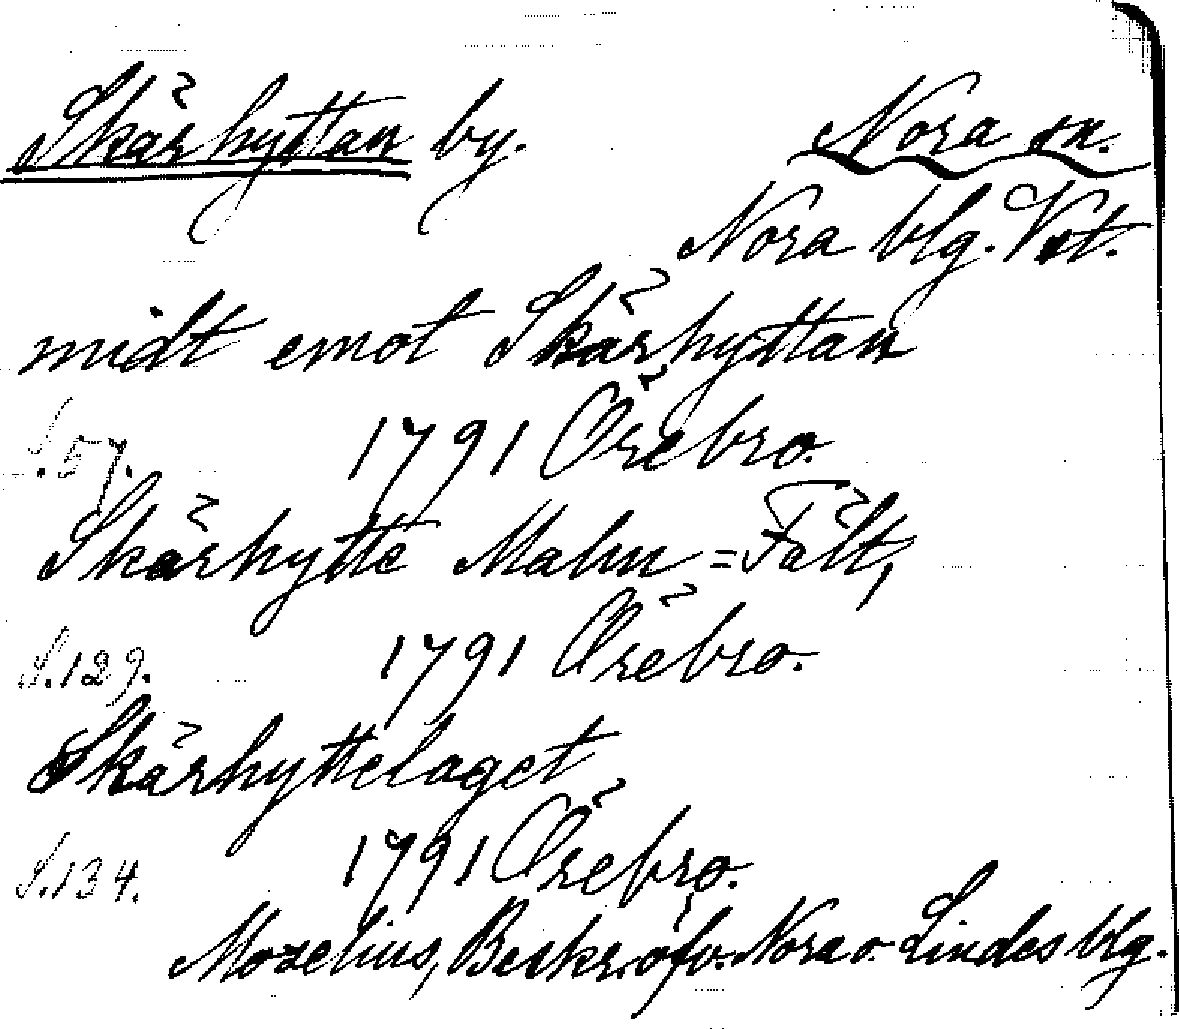 Skärhyttan by. Nora sn.
Nora blg. Vst.
midt emot Skärhyttan
S.57. 1791 Örebro.
Skärhytte Malm=Fält,
S.129. 1791 Örebro.
Skärhyttelaget
S.134. 1791 Örebro.
Mozelius, Beskr. öfv. Nora o. Lindes blg.